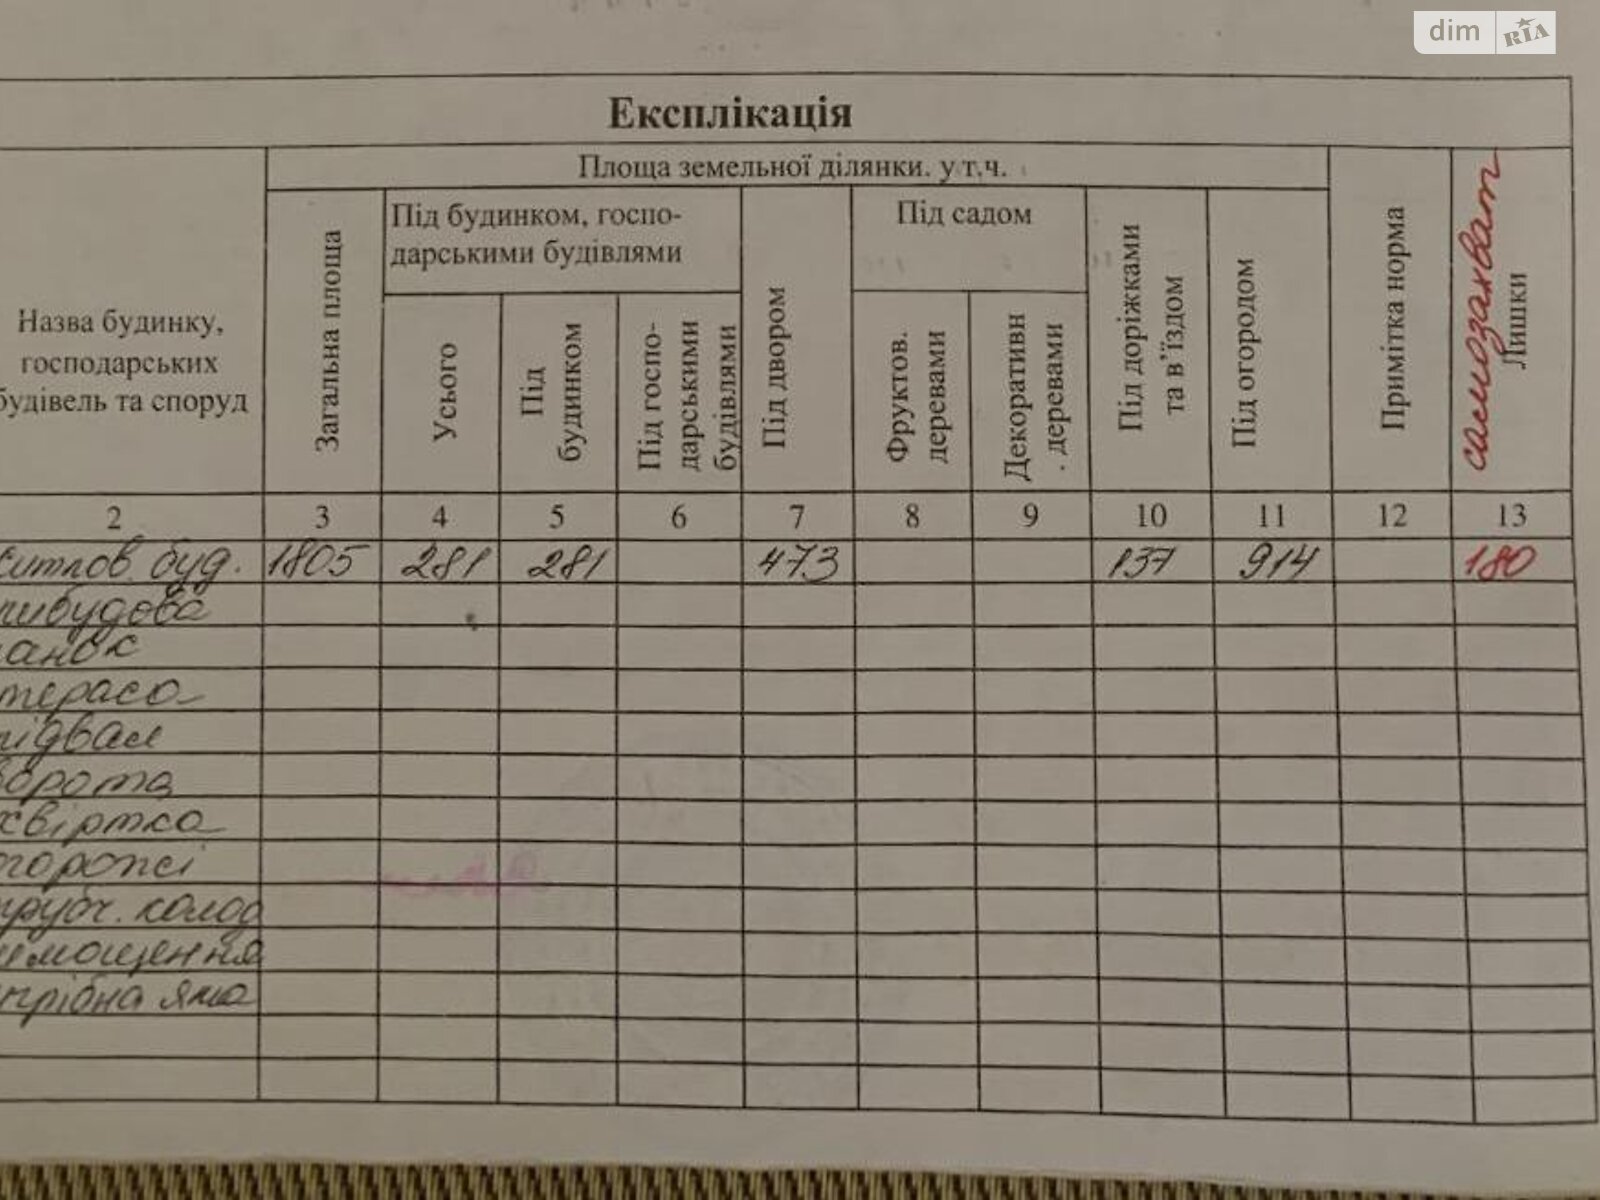 dim RIA
Експлікація
Площа земельної ділянки. у т.ч.
Назва будинку,
господарських
будівель та споруд
Загальна площа
Під будинком, госпо-
дарськими будівлями
Усього
Під
будинком
Під госпо-
дарськими
будівлями
Під двором
Під садом
Фруктов.
деревами
Декоративн
. деревами
Під доріжками
та в'їздом
Під огородом
Примітка норма
самозахват
Лишки
2 3 4 5 6 7 8 9 10 11 12 13
житлов. буд. 1805 281 281 473 137 914 180
прибудова
ганок
тераса
підвал
ворота
хвіртка
огорожі
трубч. колод
имощення
игрібна яма